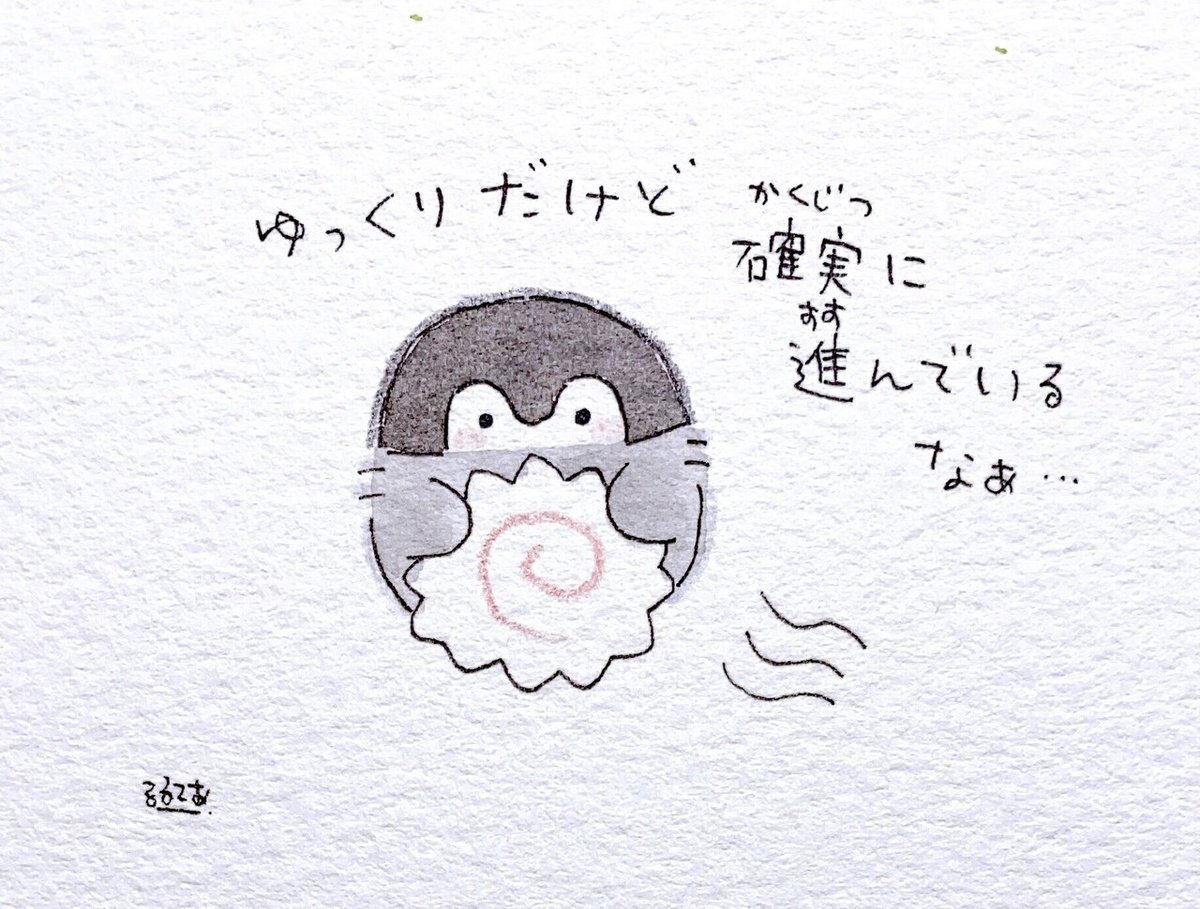 ゆっくりだけど
かくじつ
確実に
すす
進んでいる
なぁ…
るるてあ